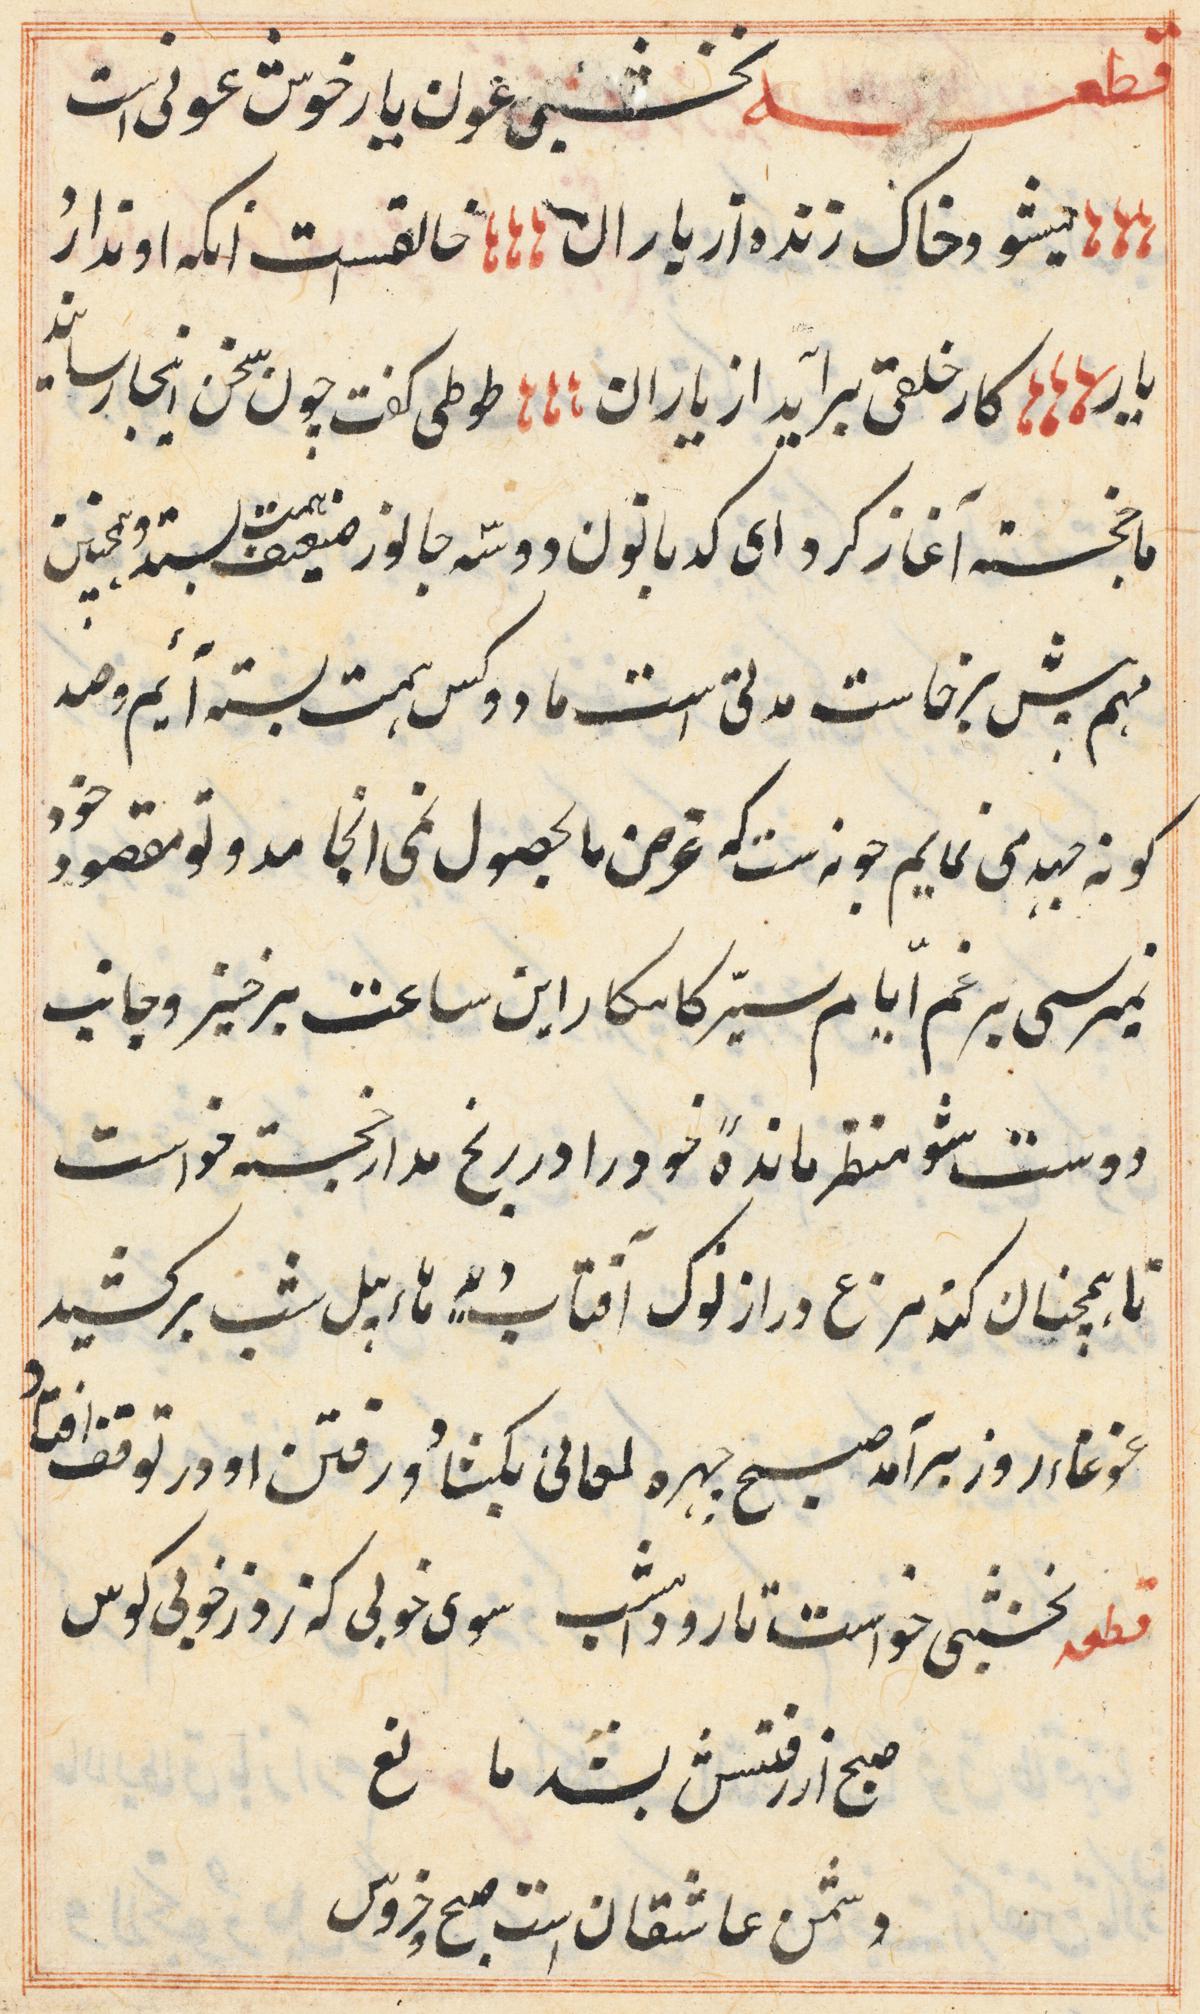 قطعه نخشبی عون یار خوش عونی است
میشود خاک زنده از باران خالقست آنکه او ندارد
یار کار خلقی برآید از یاران طوطی کفت چون سخن اینجا رسانید
با خجسته آغاز کرد ای کدبانو آن دو سه جانور ضعیف همت بستند و همچنین
مهم پیش برخاست مدتی است ما دو کس همت بسته آئیم و صد
کونه جهد می نمایم چونه ست که غرض ما بحصول نمی انجامد و تو مقصود خود
نمیرسی برغم ایام سیر کامکار این ساعت برخیز و جانب
دوست شو منتظر مانده خود را در رنج مدار خجسته خواست
تا همچنان کند مرغ دراز نوک آفتاب پیل شب برکشید
غوغاء روز برآمد صبح چهره لمعانی بکشاد و رفتن او در توقف افتاد
قطعه نخشبی خواست تا رود امشب سوی خوبی که زد ز خوبی کوس
صبح از رفتنش بشد مانع
دشمن عاشقان است صبح و خروس